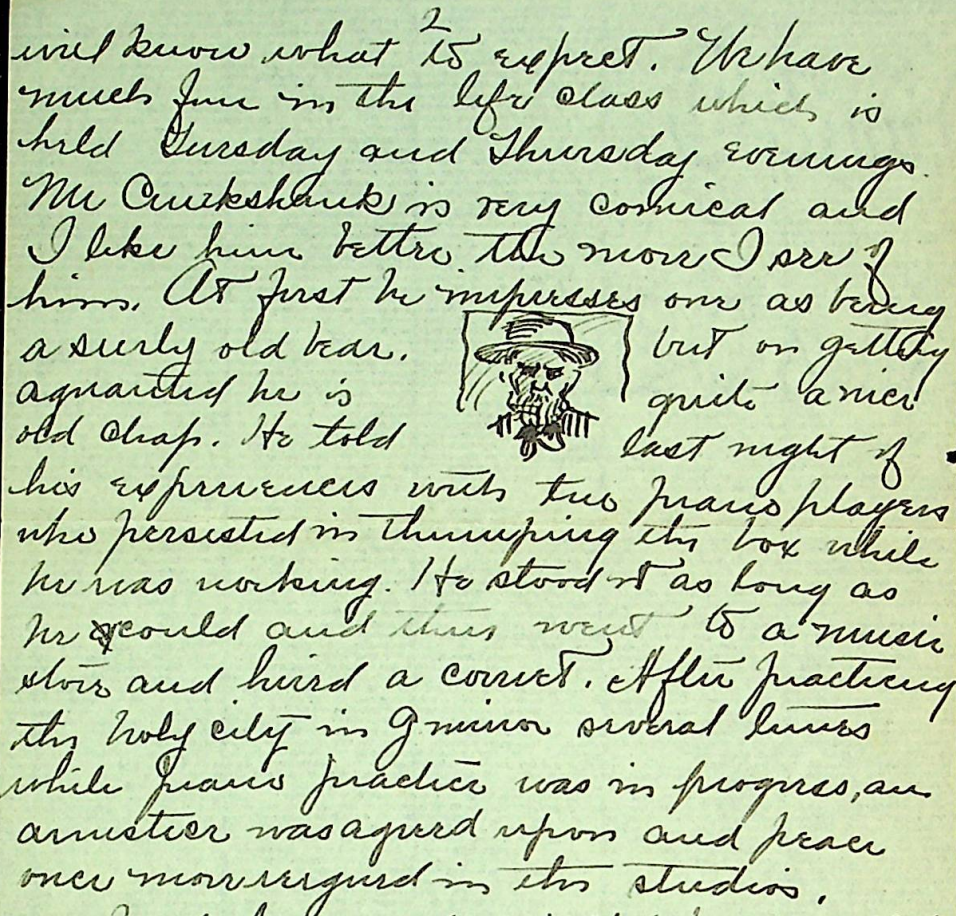 2
will know what to expect. We have
much fun in the life class which is
held Tuesday and Thursday evenings.
Mr Cruikshank is very comical and
I like him better the more I see of
him. At first he impresses one as being
a surly old bear. but on getting
aquainted he is quite a nice
old chap. He told last night of
his experiences with two piano players
who persisted in thumping the box while
he was working. He stood it as long as
he could and then went to a music
store and hired a cornet. After practicing
the holy city in G minor several times
while piano practice was in progress, an
armistice was agreed upon and peace
once more reigned in the studios.